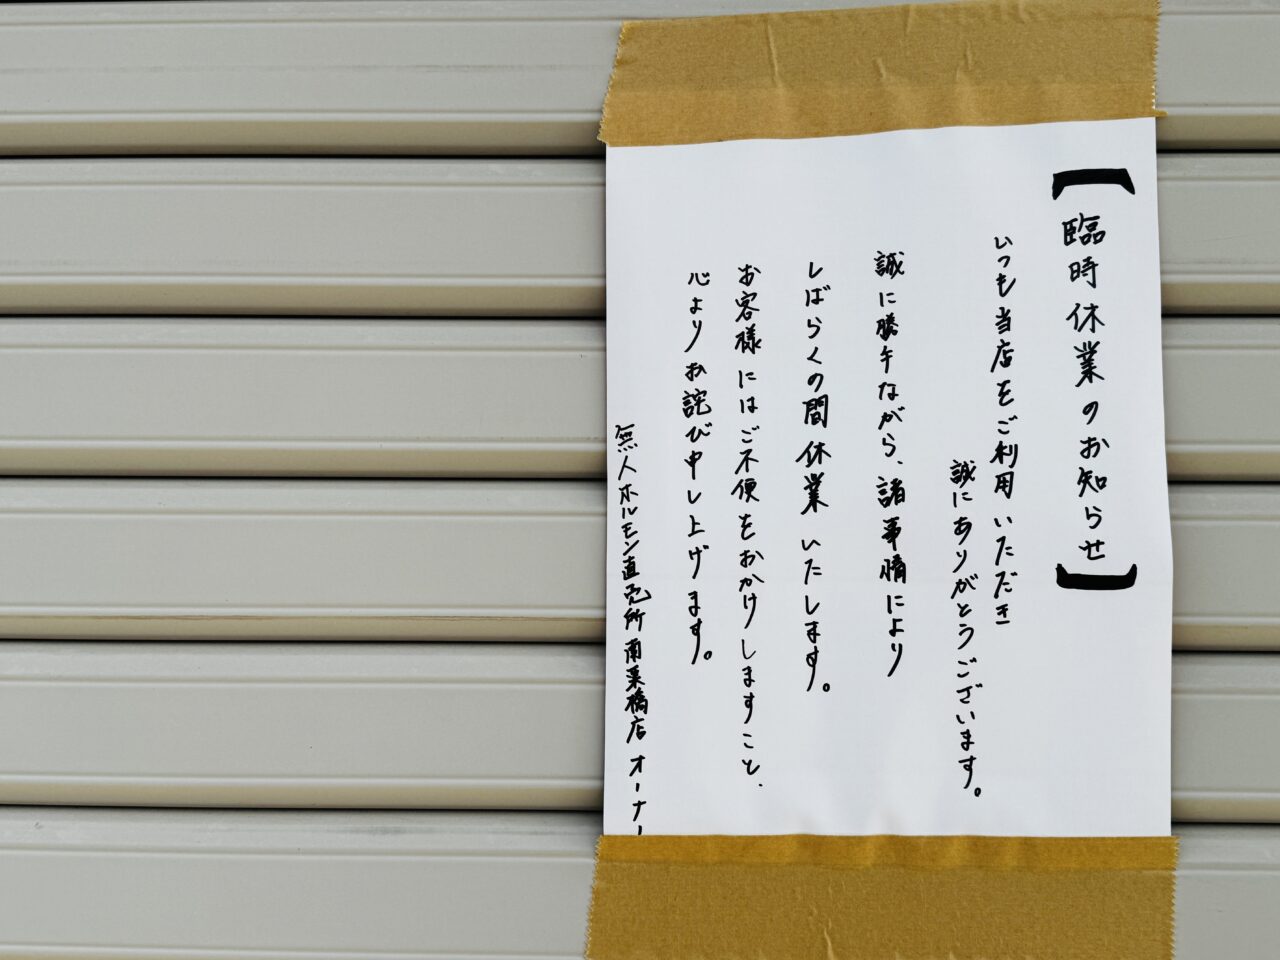 【臨時休業のお知らせ】
いつも当店をご利用いただき
誠にありがとうございます。
誠に勝手ながら、諸事情により
しばらくの間休業いたします。
お客様にはご不便をおかけしますこと、
心よりお詫び申し上げます。
無人ホルモン直売所南栗橋店オーナー